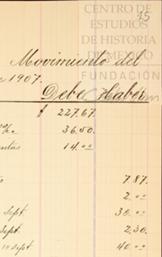 CENTRO DE
ESTUDIOS
DE HISTORIA
DE MEXICO
FUNDACIÓN
15
Movimiento del
1907.
Debe Haber
$ 227.67
36.50.
14.--
7.87.
2.--
Sept. 30.--
Sept. 2.30.
Sept. 40.--